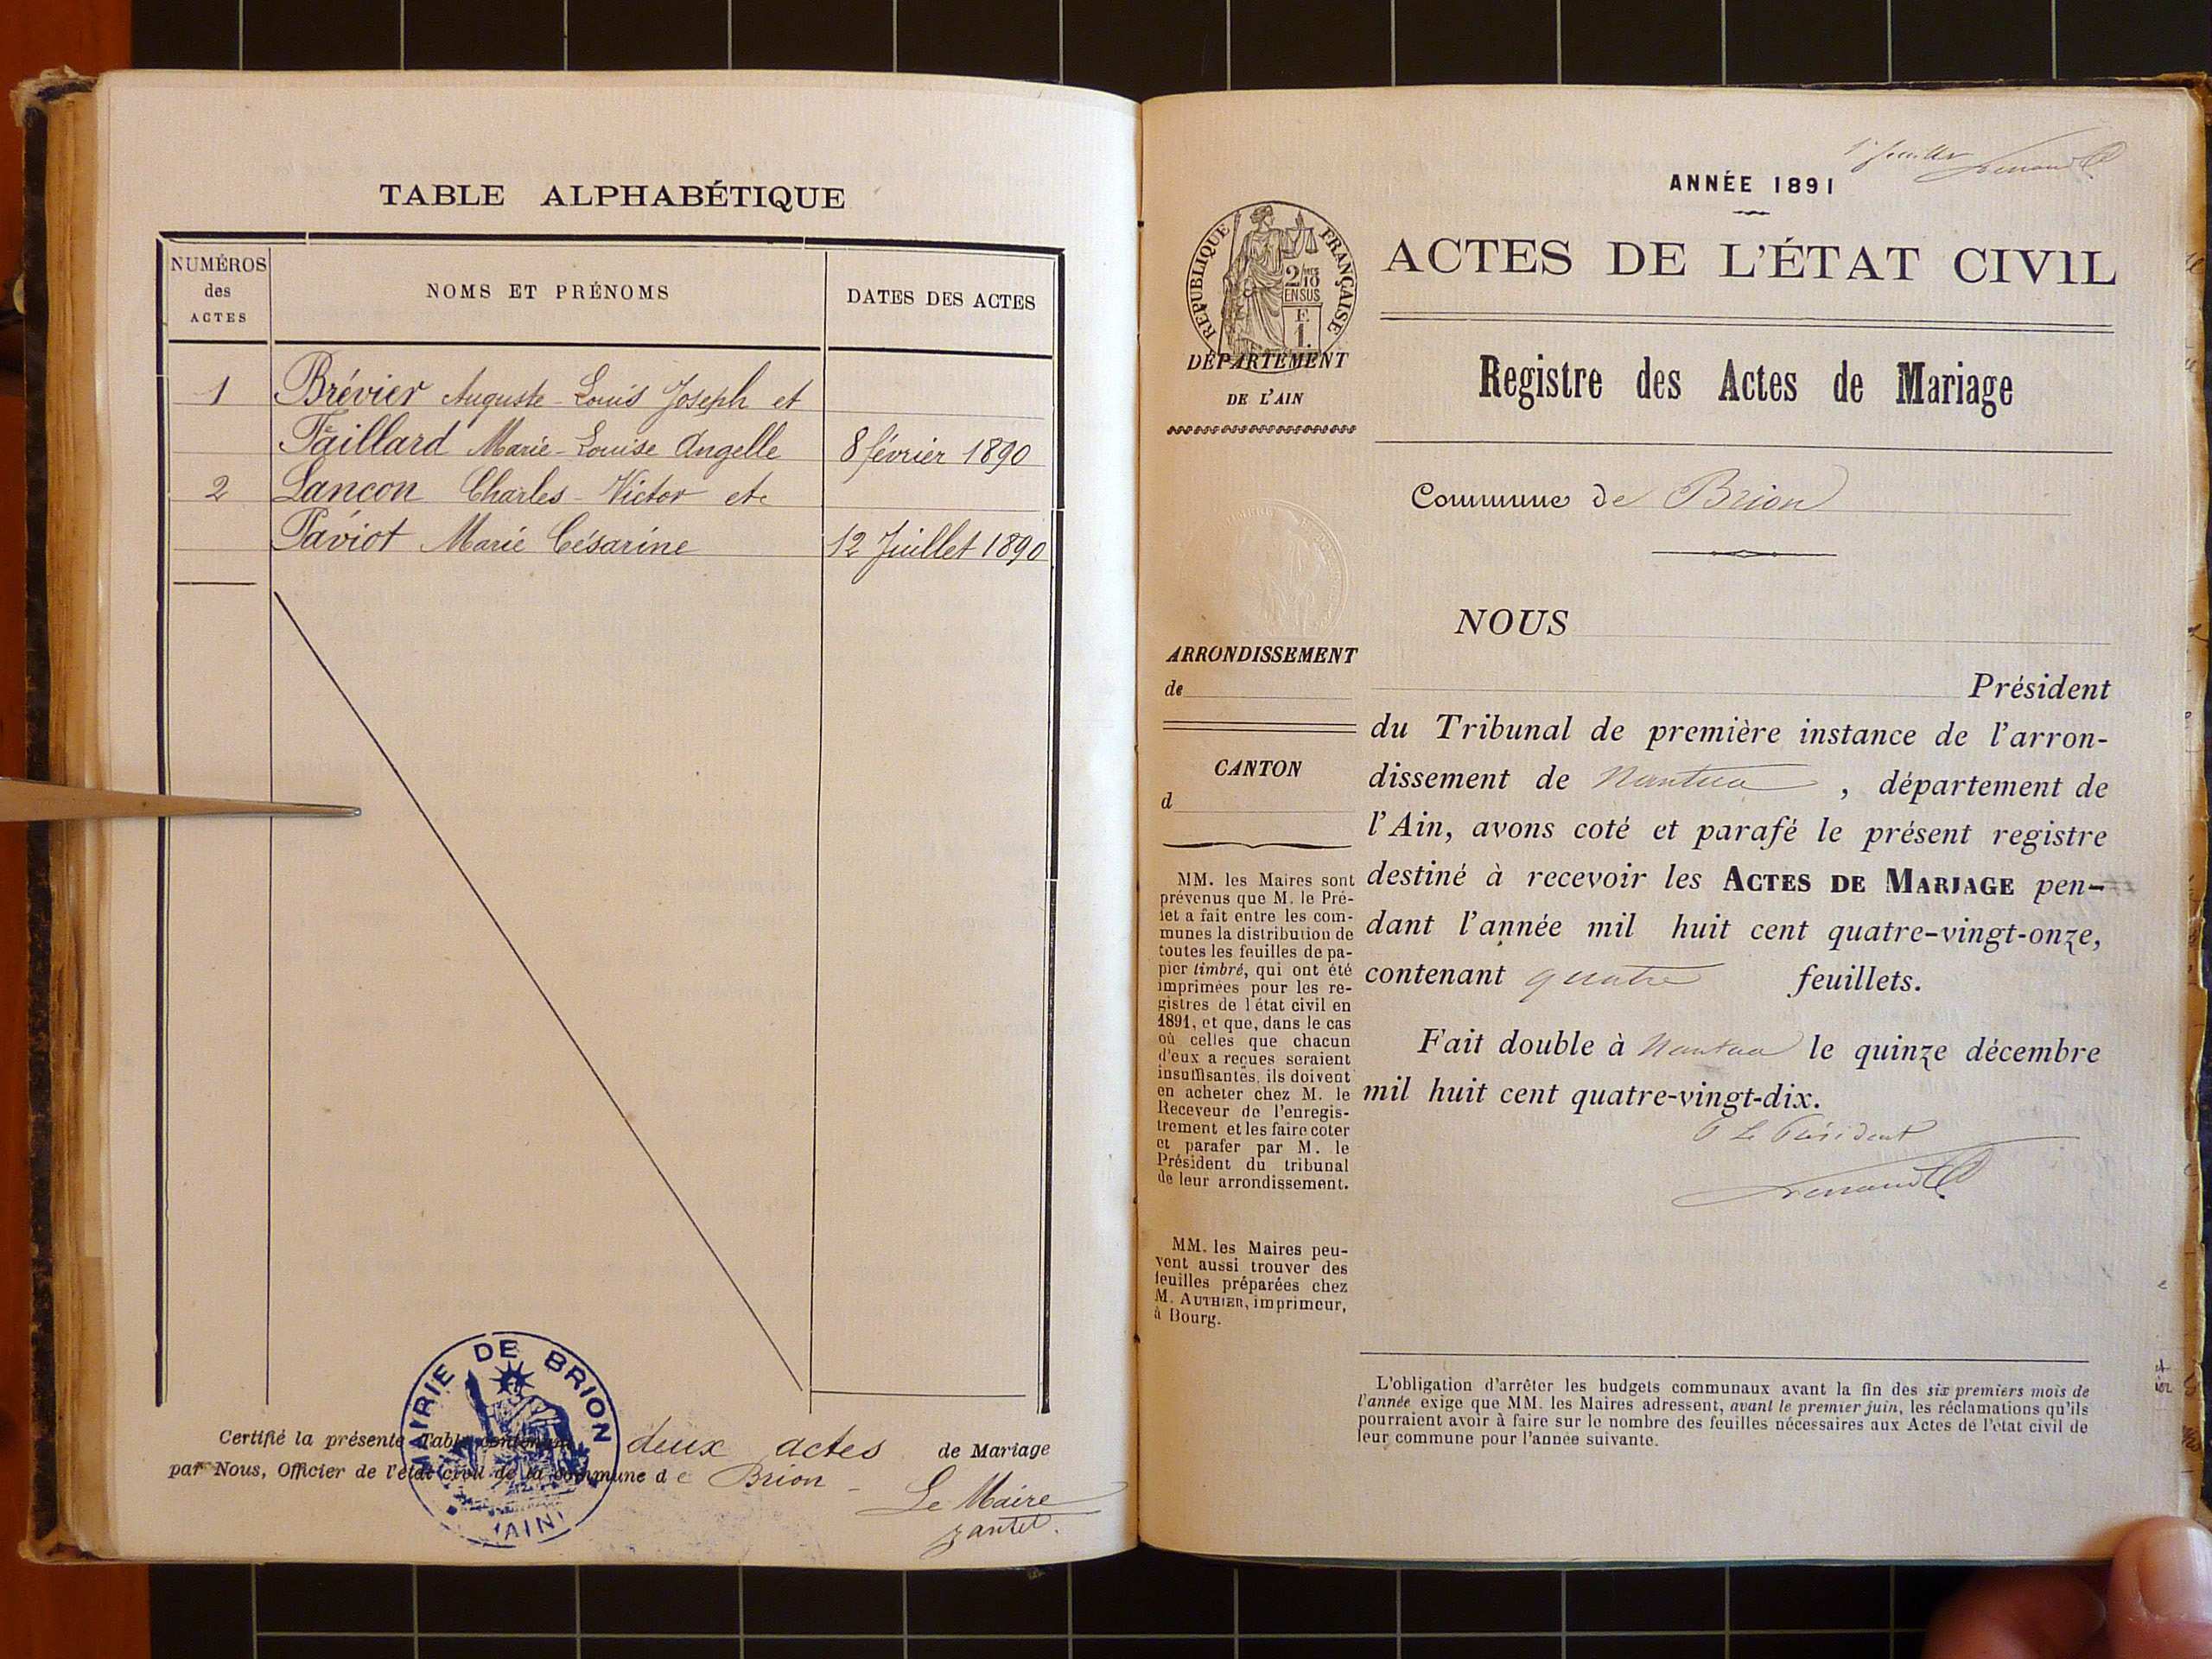 TABLE ALPHABÉTIQUE
NUMÉROS
des
ACTES
NOMS ET PRÉNOMS
DATES DES ACTES
1 Brévier Auguste-Louis Joseph et
Taillard Marie-Louise Angelle 8 février 1890
2 Lançon Charles-Victor et
Paviot Marie Césarine 12 Juillet 1890
Certifié la présente Table contenant deux actes de Mariage
par Nous, Officier de l'état civil de la commune de Brion
Le Maire
MAIRIE DE BRION
(AIN)
1er feuillet
ANNÉE 1891
RÉPUBLIQUE FRANÇAISE
2/10
EN SUS
F
1.
ACTES DE L'ÉTAT CIVIL
DÉPARTEMENT
DE L'AIN
Registre des Actes de Mariage
Commune de Brion
NOUS
ARRONDISSEMENT
de
CANTON
d
Président
du Tribunal de première instance de l'arron-
dissement de Nantua, département de
l'Ain, avons coté et parafé le présent registre
destiné à recevoir les ACTES DE MARIAGE pen-
dant l'année mil huit cent quatre-vingt-onze,
contenant quatre feuillets.
Fait double à Nantua le quinze décembre
mil huit cent quatre-vingt-dix.
Le Président
MM. les Maires sont
prévenus que M. le Pré-
fet a fait entre les com-
munes la distribution de
toutes les feuilles de pa-
pier timbré, qui ont été
imprimées pour les re-
gistres de l'état civil en
1891, et que, dans le cas
où celles que chacun
d'eux a reçues seraient
insuffisantes, ils doivent
en acheter chez M. le
Receveur de l'enregis-
trement et les faire coter
et parafer par M. le
Président du tribunal
de leur arrondissement.
MM. les Maires peu-
vent aussi trouver des
feuilles préparées chez
M. AUTHIER, imprimeur,
à Bourg.
L'obligation d'arrêter les budgets communaux avant la fin des six premiers mois de
l'année exige que MM. les Maires adressent, avant le premier juin, les réclamations qu'ils
pourraient avoir à faire sur le nombre des feuilles nécessaires aux Actes de l'état civil de
leur commune pour l'année suivante.